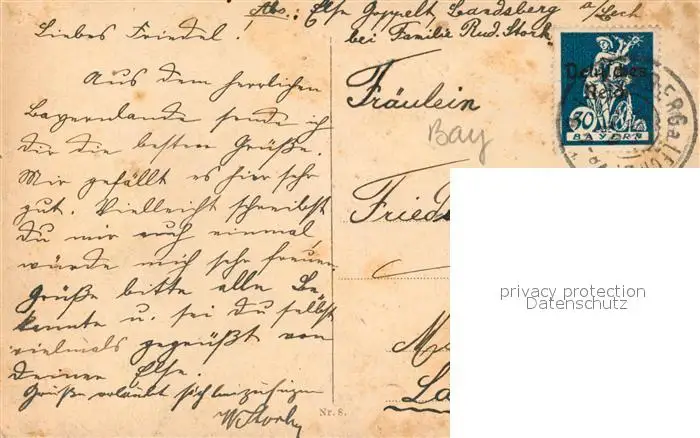 Abs.: Else Goppelt Landsberg a/Lech
bei Familie Rud. Stork
Liebes Friedel!
Aus dem herrlichen
Bayernlande sende ich
dir die besten Grüße.
Mir gefällt es hier sehr
gut. Vielleicht schreibst
Du mir auch einmal
würde mich sehr freuen.
Grüße bitte alle Be
kannte u. sei du selbst
vielmals gegrüßt von
deiner Else.
Grüße erlaubt sich beizufügen
W Stork
Fräulein
Bay
Deutsches
Reich
30
BAYERN
Nr. 8.
privacy protection
Datenschutz